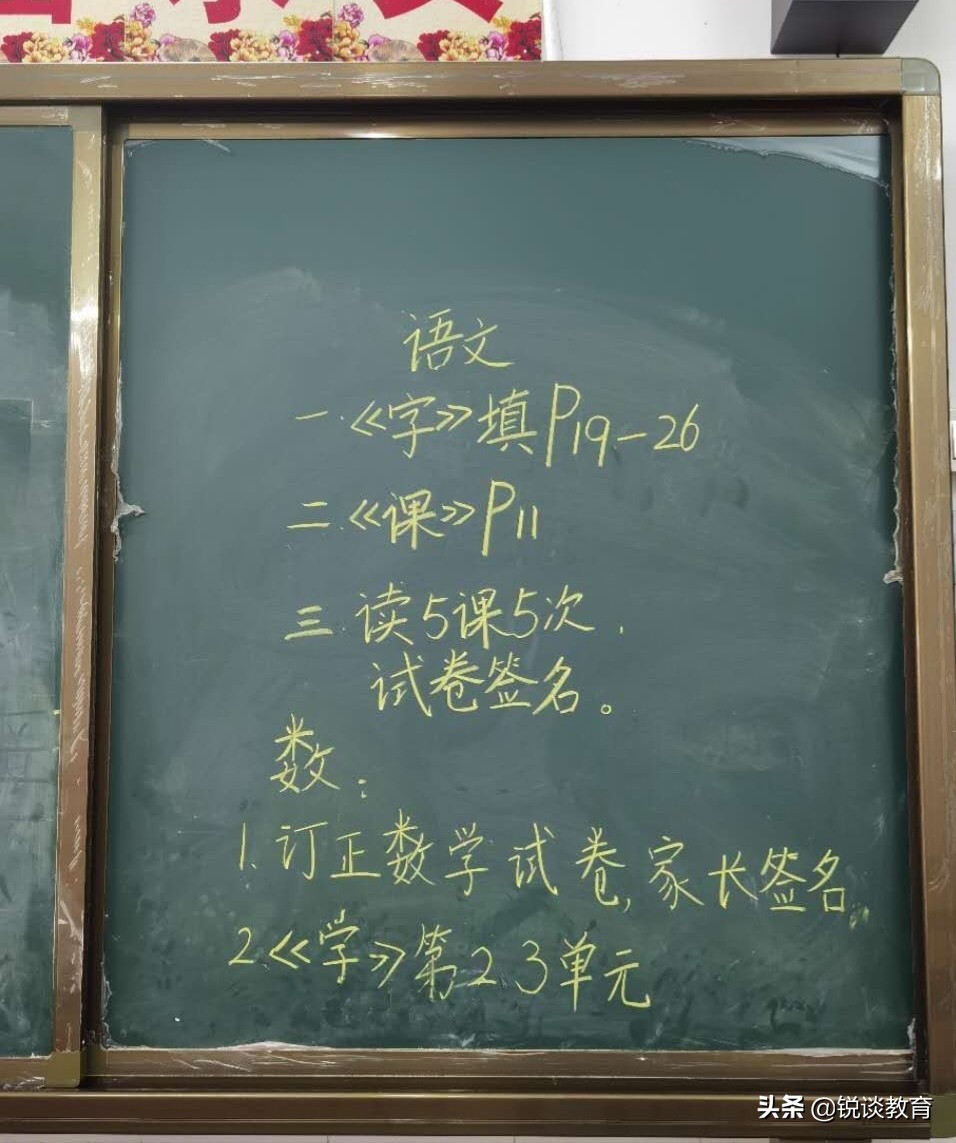 语文
一.《字》填P19-26
二.《课》P11
三.读5课5次.
试卷签名。
数:
1.订正数学试卷,家长签名.
2.《学》第2.3单元
头条 @锐谈教育